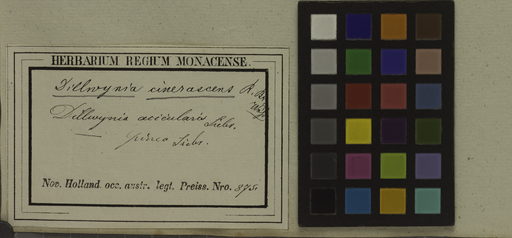 HERBARIUM REGIUM MONACENSE.
Dillwynia cinerascens R. Br.
Dillwynia acicularis Siebr.
Siebr.
Nov. Holland. occ. austr. legt. Preiss. Nro.